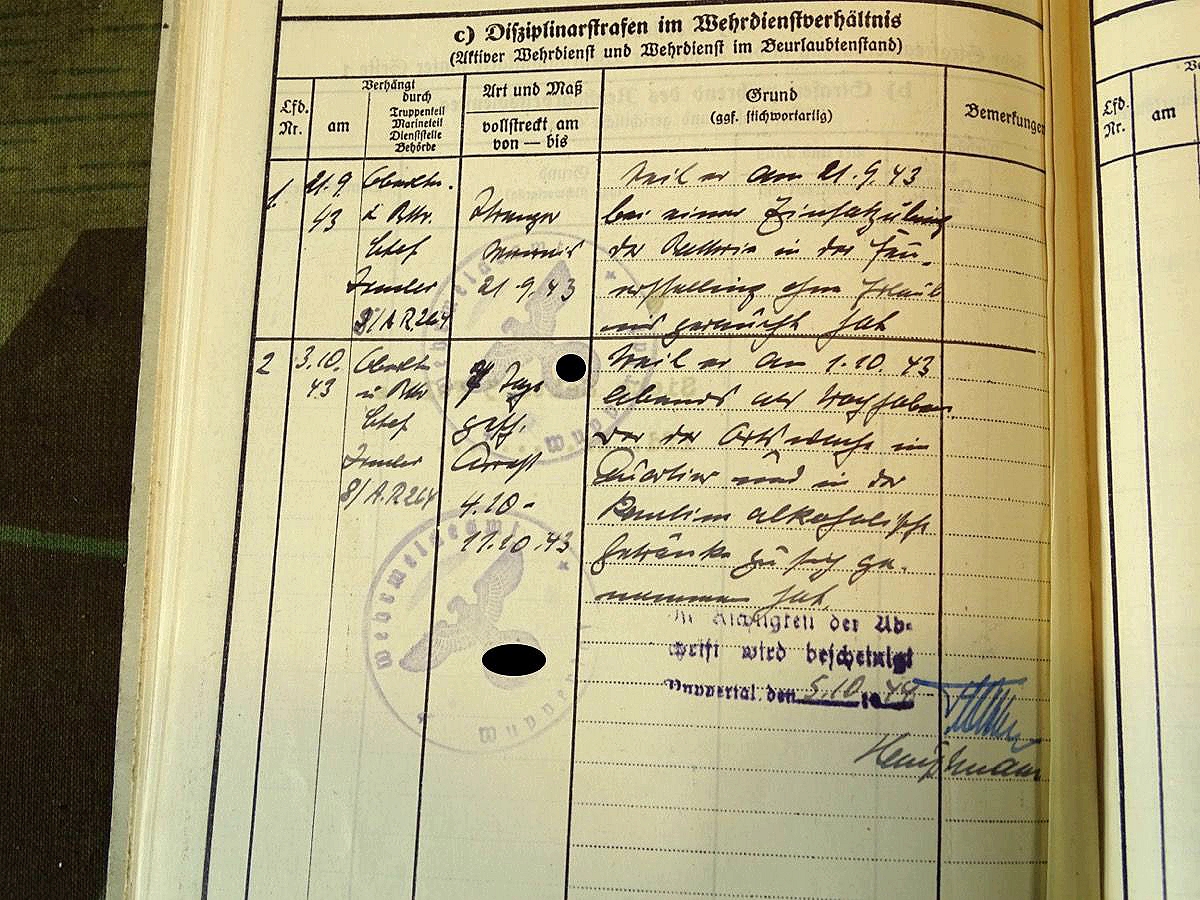 c) Disziplinarstrafen im Wehrdienstverhältnis
(Aktiver Wehrdienst und Wehrdienst im Beurlaubtenstand)
Lfd. Nr.
am
Verhängt durch
Truppenteil
Marineteil
Dienststelle
Behörde
Art und Maß
vollstreckt am
von — bis
Grund
(ggf. stichwortartig)
Bemerkungen
Lfd. Nr.
am
1.
21.9.
43
Oberltn.
u Bttr.
Chef
8/A.R 264
Strenger
Verweis
21.9.43
Weil er am 21.9.43
bei einer Einsatzübung
der Batterie in der Feu-
erstellung ohne Erlaub
nis geraucht hat
2
3.10.
43
Oberltn.
u Bttr
Chef
8/A.R.264
7 Tage
gesch.
Arrest
4.10-
11.10.43
Weil er am 1.10.43
Abends als Wachhaben
der der Ortswache im
Quartier und in der
Kantine alkoholische
Getränke zu sich ge-
nommen hat
Wehrmeldeamt
Wehrmeldeamt
der Ab-
schrift wird bescheinigt
Wuppertal, den 5.10 1944
Hauptmann